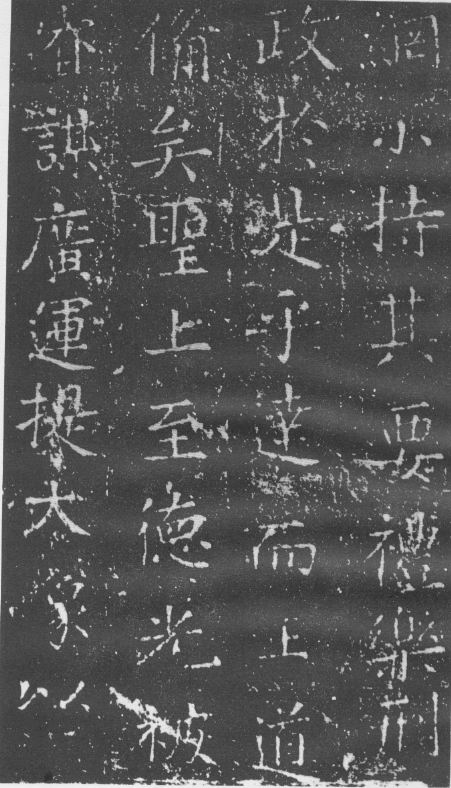 洞小持其要禮樂刑
政於是乎達而上道
備矣聖上至德光被
睿謀廣運操大象以